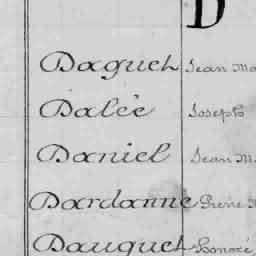 D
Daguet Jean Ma
Dalèe Joseph
Daniel Jean M
Dardanne Pierre
Dauguet Honoré